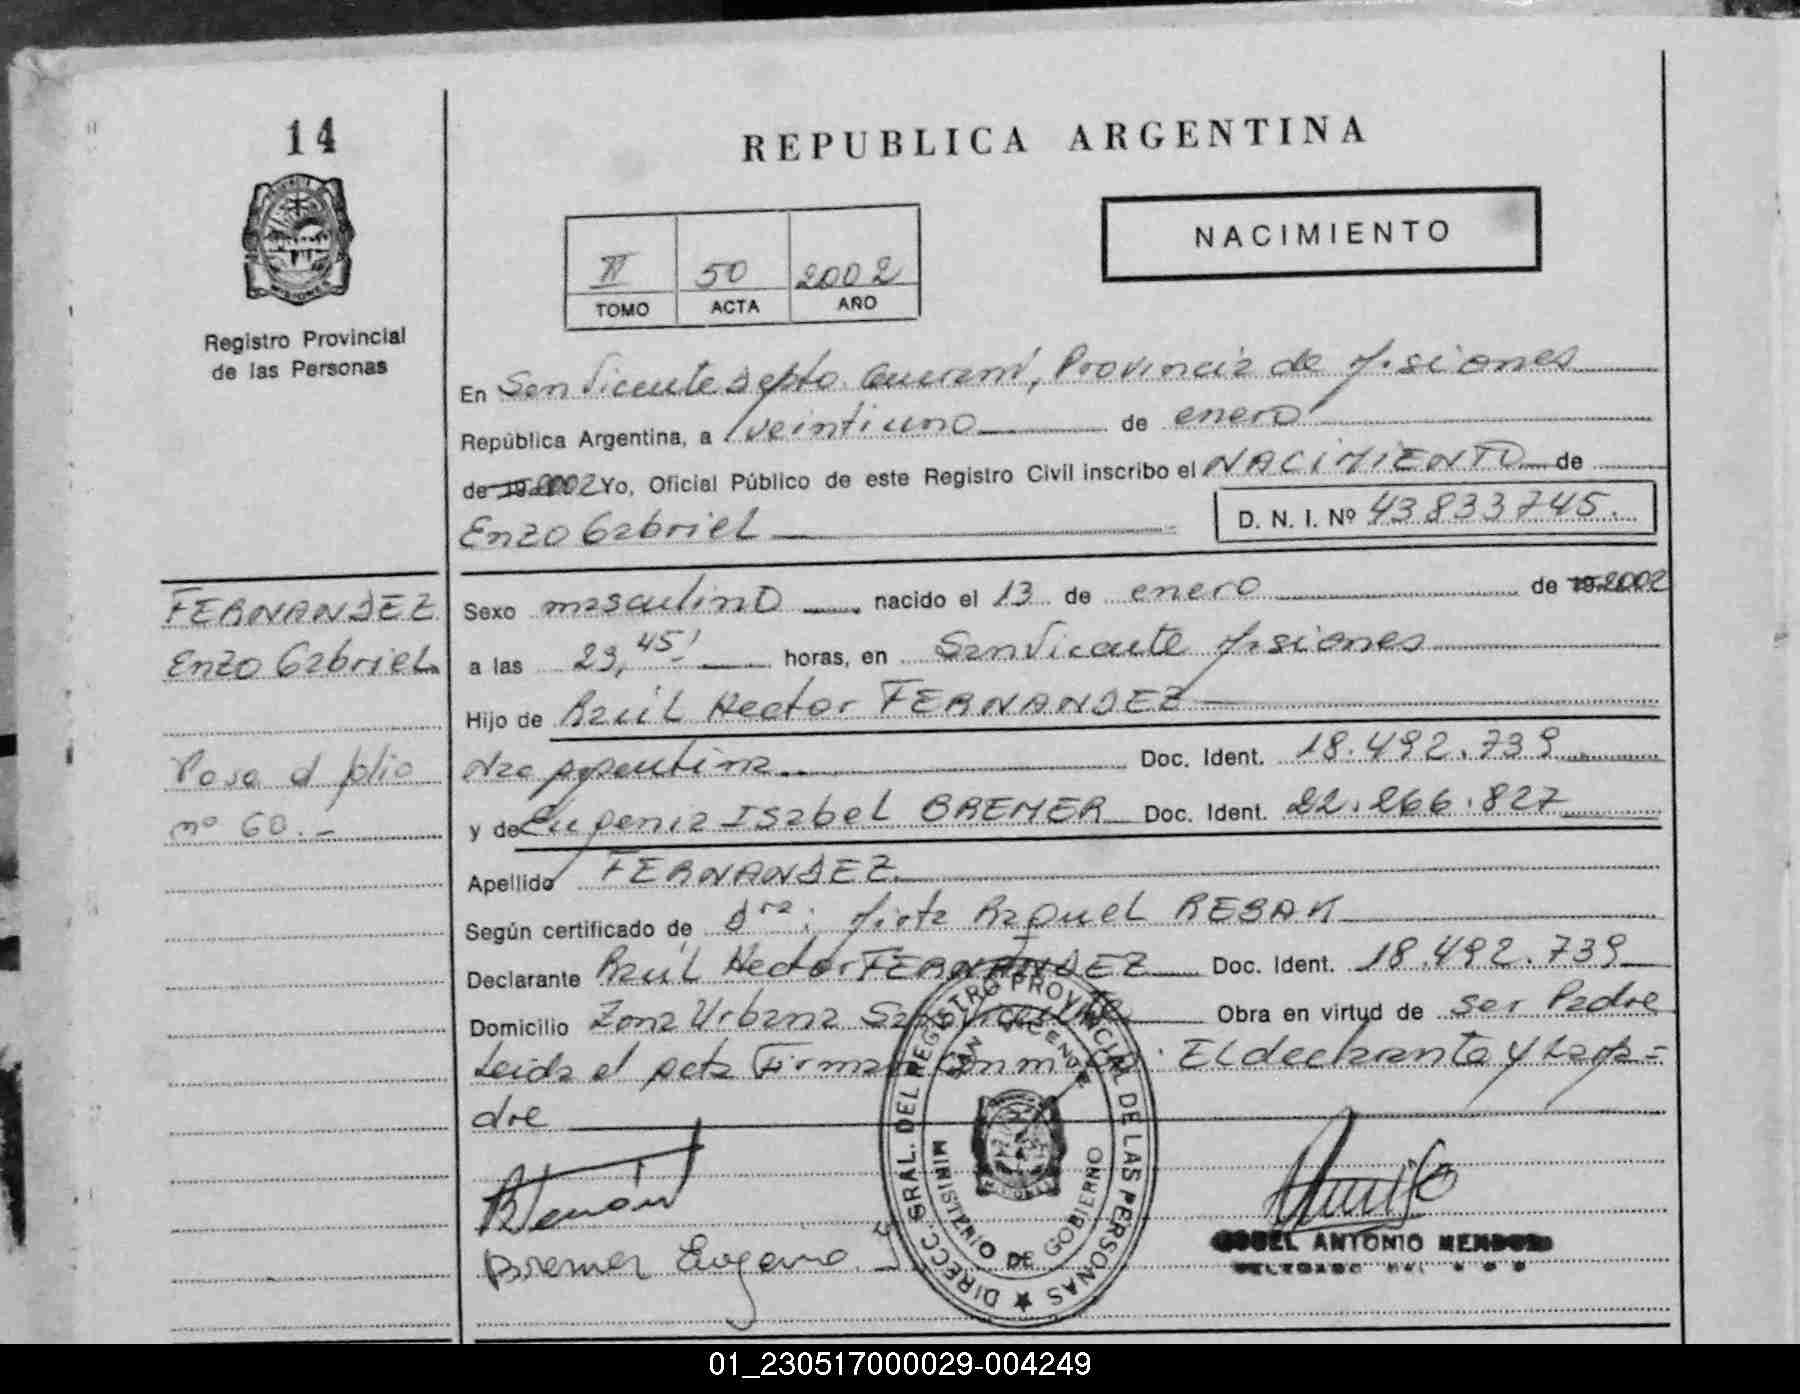 14
REPUBLICA ARGENTINA
NACIMIENTO
II 50 2002
TOMO ACTA AÑO
Registro Provincial
de las Personas
En San Vicente depto. Guaraní, Provincia de Misiones
República Argentina, a veintiuno de enero
de 19 2002 Yo, Oficial Público de este Registro Civil inscribo el NACIMIENTO de
Enzo Gabriel D. N. I. Nº 43833745.
FERNANDEZ
Enzo Gabriel
Pasa al folio
nº 60.-
Sexo masculino nacido el 13 de enero de 19 2002
a las 23,45' horas, en San Vicente Misiones
Hijo de Raúl Hector FERNANDEZ
Nac argentina Doc. Ident. 18.492.739
y de Eugenia Isabel BREMER Doc. Ident. 22.266.827
Apellido FERNANDEZ
Según certificado de Dra: Mirta Raquel REBAK
Declarante Raúl Hector FERNANDEZ Doc. Ident. 18.492.739
Domicilio Zona Urbana San Vicente Obra en virtud de ser Padre
Leida el acta Firman conmigo: El declarante y La Ma=
dre
Bremer Eugenia
DIRECC. GRAL. DEL REGISTRO PROVINCIAL DE LAS PERSONAS
SAN VICENTE
MISIONES
MINISTERIO DE GOBIERNO
ANTONIO
01_230517000029-004249